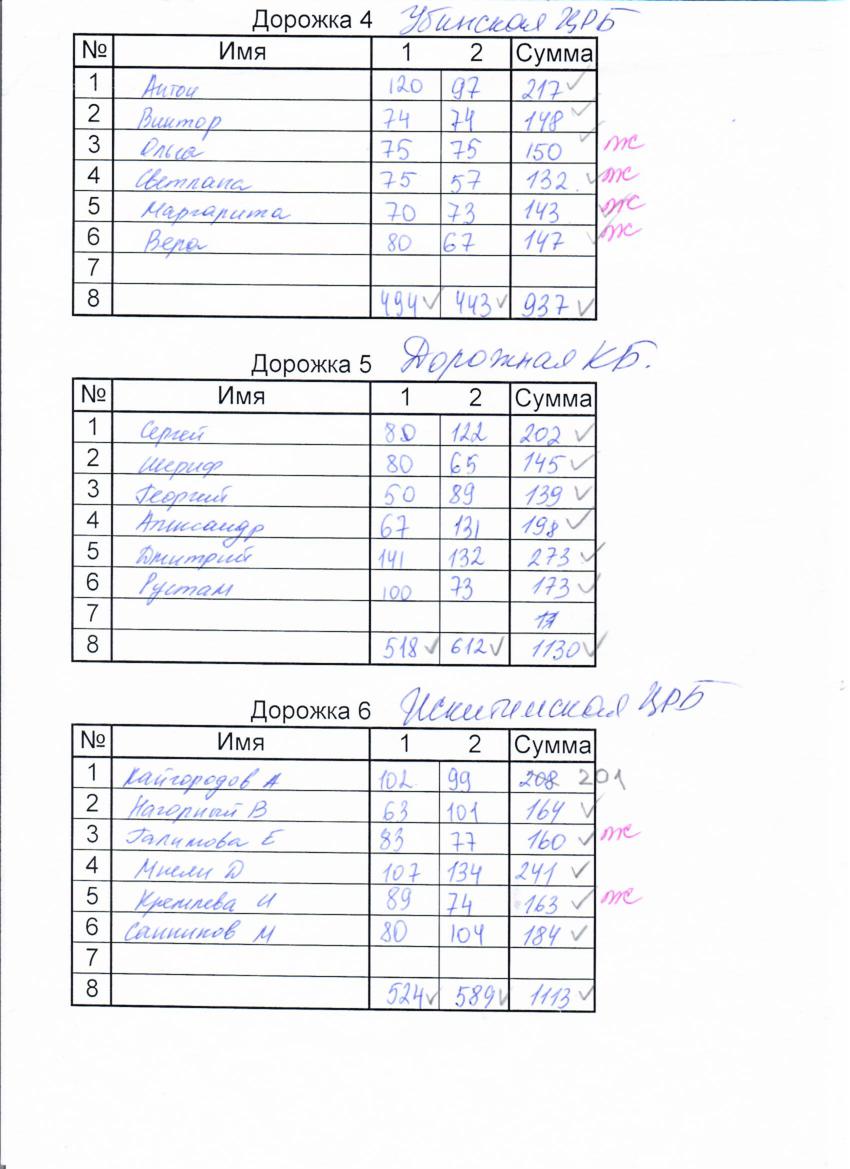 Дорожка 4 Убинская ЦРБ
№ Имя 1 2 Сумма
1 Антон 120 97 217 ✓
2 Виктор 74 74 148 ✓
3 Ольга 75 75 150 ✓ ж
4 Светлана 75 57 132 ✓ ж
5 Маргарита 70 73 143 ✓ ж
6 Вера 80 67 147 ✓ ж
7
8 494 ✓ 443 ✓ 937 ✓
Дорожка 5 Дорожная КБ.
№ Имя 1 2 Сумма
1 Сергей 80 122 202 ✓
2 Шериф 80 65 145 ✓
3 Георгий 50 89 139 ✓
4 Александр 67 131 198 ✓
5 Дмитрий 141 132 273 ✓
6 Рустам 100 73 173 ✓
7
8 518 ✓ 612 ✓ 1130 ✓
Дорожка 6 Искитимская ЦРБ
№ Имя 1 2 Сумма
1 Кайгородов А 102 99 208 201
2 Нагорный В 63 101 164 ✓
3 Галимова Е 83 77 160 ✓ ж
4 Мнели Д 107 134 241 ✓
5 Кремлева И 89 74 163 ✓ ж
6 Санников М 80 104 184 ✓
7
8 524 ✓ 589 ✓ 1113 ✓